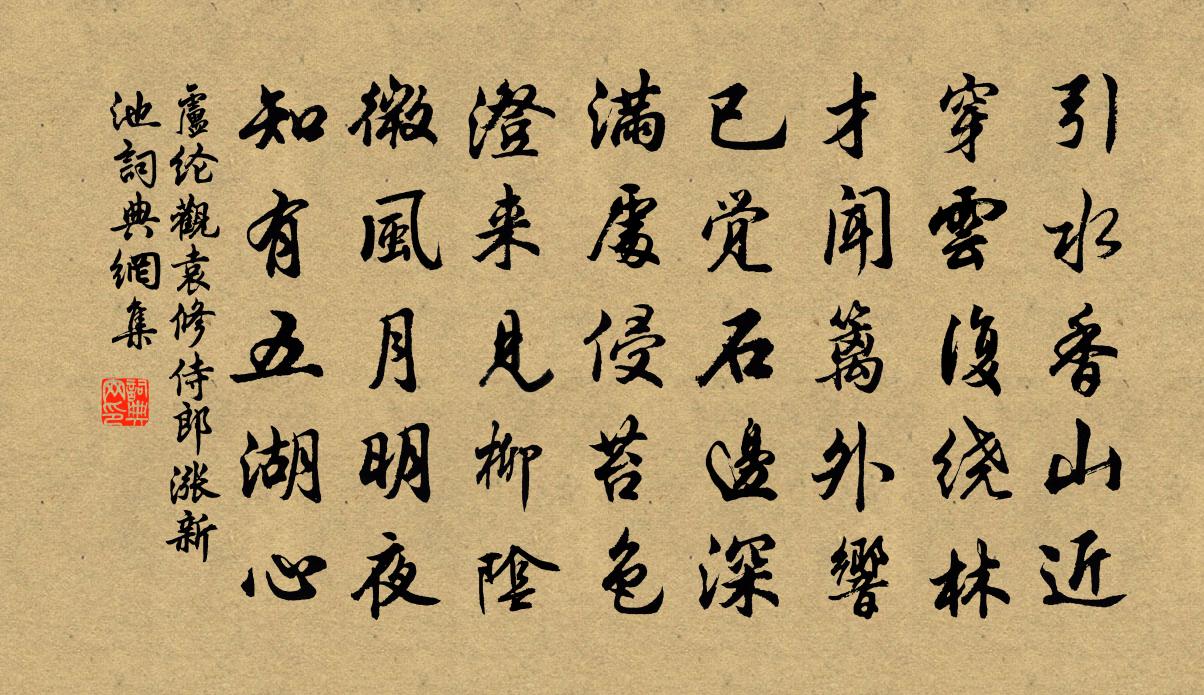 引水香山近
穿雲復绕林
才聞篱外響
已觉石邊深
满處侵苔色
澄来見柳陰
微風月明夜
知有五湖心
盧纶觀袁修侍郎漲新
池詞典網集
詞典
网印